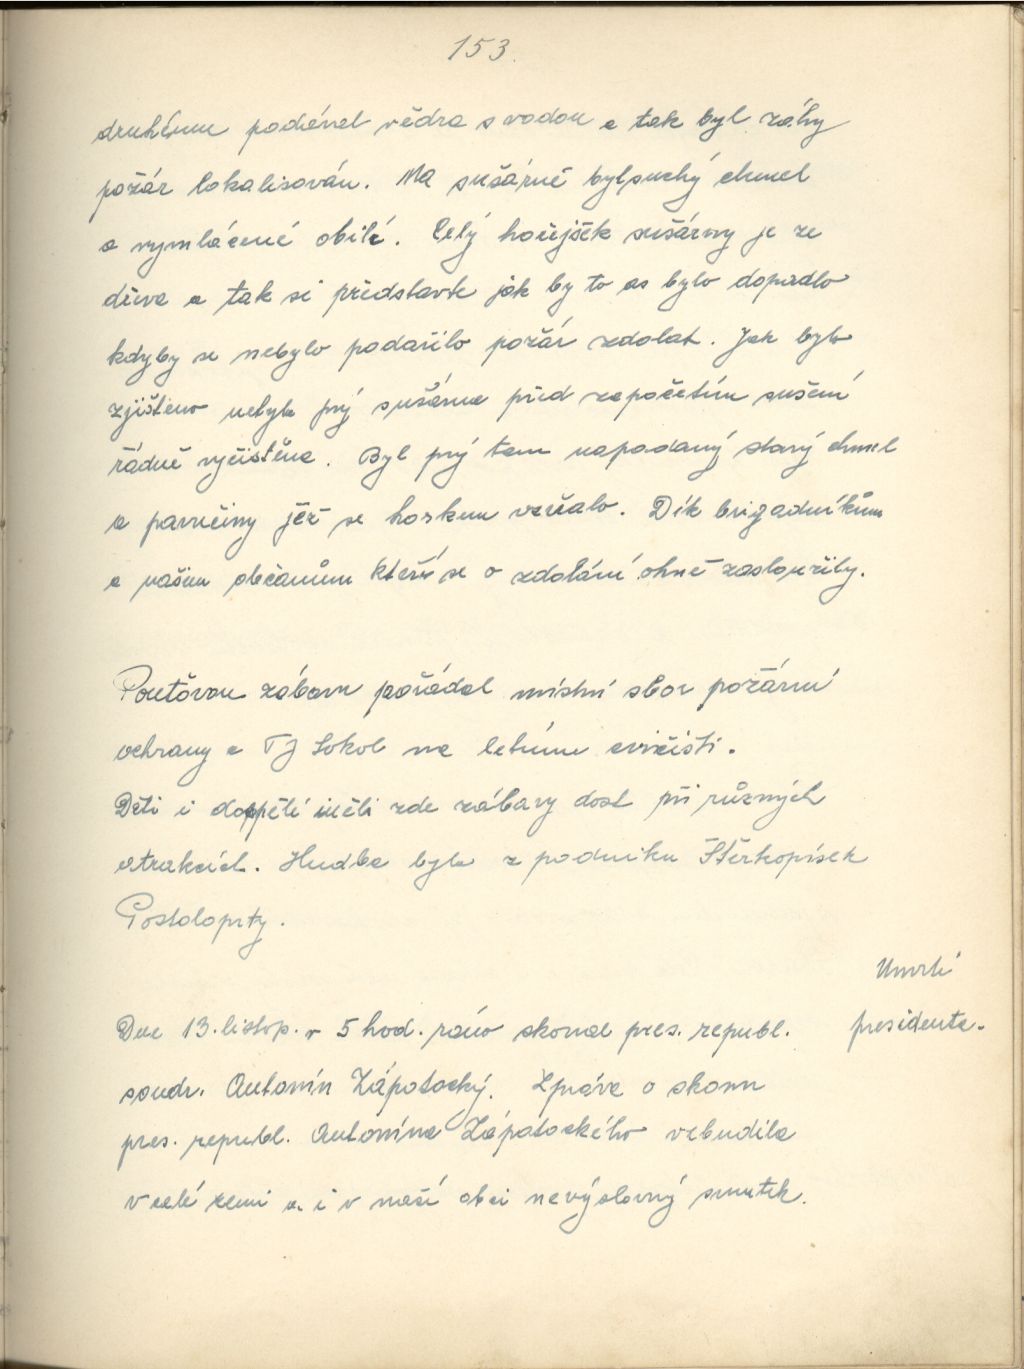 153.
druhému podával vědra s vodou a tak byl záhy
požár lokalisován. Na sušárně byl suchý chmel
a vymlácené obilí. Celý hořejšek sušárny je ze
dřeva a tak si představte jak by to as bylo dopadlo
kdyby se nebylo podařilo požár zdolat. Jak bylo
zjištěno nebyla prý sušárna před započetím sušení
řádně vyčištěna. Byl prý tam napadaný starý chmel
a pavučiny jež se horkem vzňalo. Dík brigadníkům
a našim občanům kteří se o zdolání ohně zasloužily.
Pouťovou zábavu pořádal místní sbor požární
ochrany a TJ Sokol na letním cvičišti.
Děti i dospělí měli zde zábavy dost při různých
atrakcích. Hudba byla z podniku Štěrkopísek
Postoloprty.
Úmrtí
presidenta.
Dne 13. listop. v 5 hod. ráno skonal pres. republ.
soudr. Antonín Zápotocký. Zpráva o skonu
pres. republ. Antonína Zápotockého vzbudila
v celé zemi a i v naší obci nevýslovný smutek.